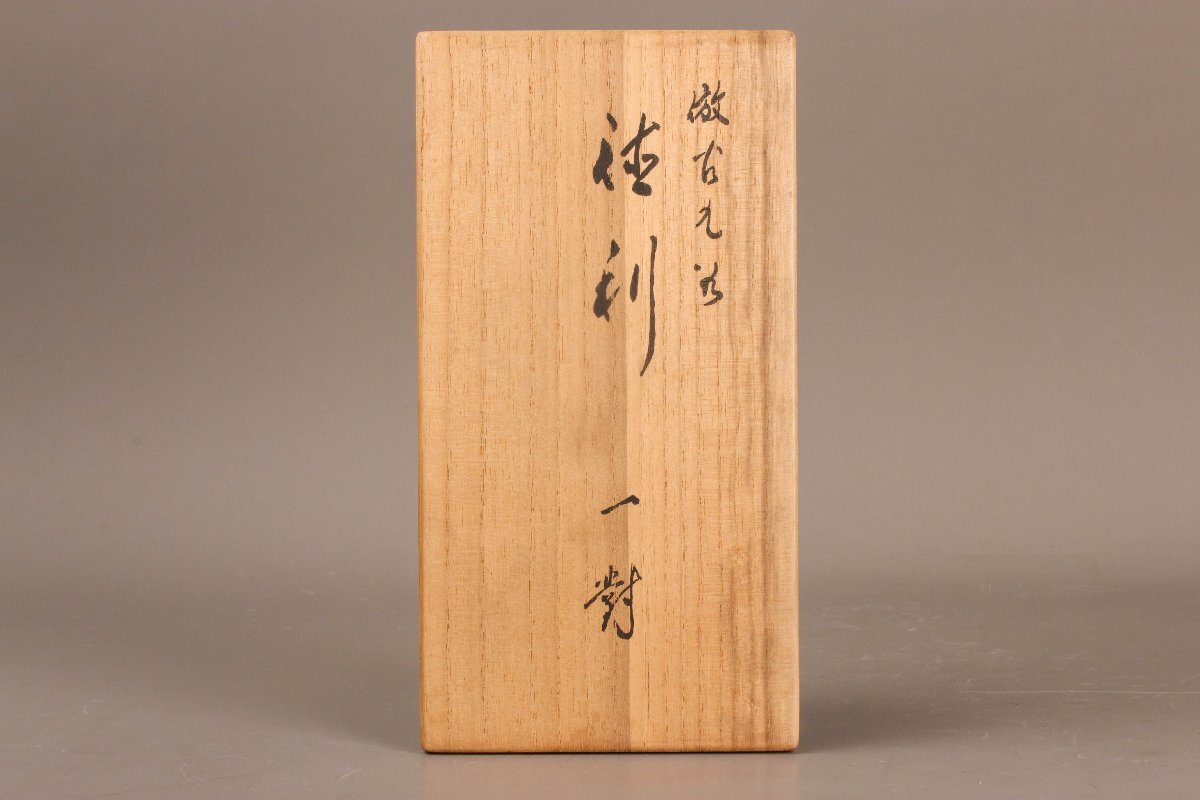 倣古九谷
徳利 一對